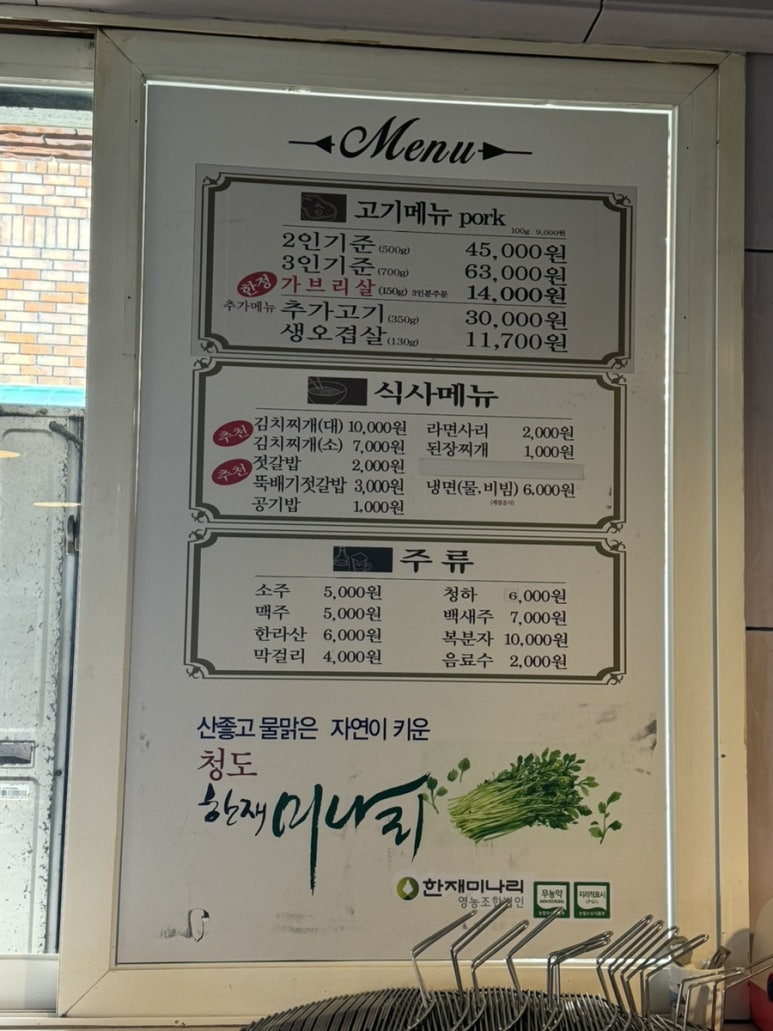 Menu
고기메뉴 pork
100g 9,000원
2인기준 (500g) 45,000원
3인기준 (700g) 63,000원
한정 가브리살 (150g) 3인분주문 14,000원
추가메뉴 추가고기 (350g) 30,000원
생오겹살 (130g) 11,700원
식사메뉴
추천 김치찌개(대) 10,000원 라면사리 2,000원
김치찌개(소) 7,000원 된장찌개 1,000원
추천 젓갈밥 2,000원
뚝배기젓갈밥 3,000원 냉면(물,비빔) 6,000원
(계절음식)
공기밥 1,000원
주류
소주 5,000원 청하 6,000원
맥주 5,000원 백새주 7,000원
한라산 6,000원 복분자 10,000원
막걸리 4,000원 음료수 2,000원
산좋고 물맑은 자연이 키운
청도
한재 미나리
한재미나리
영농조합법인
무농약
지리적표시
(PGI)